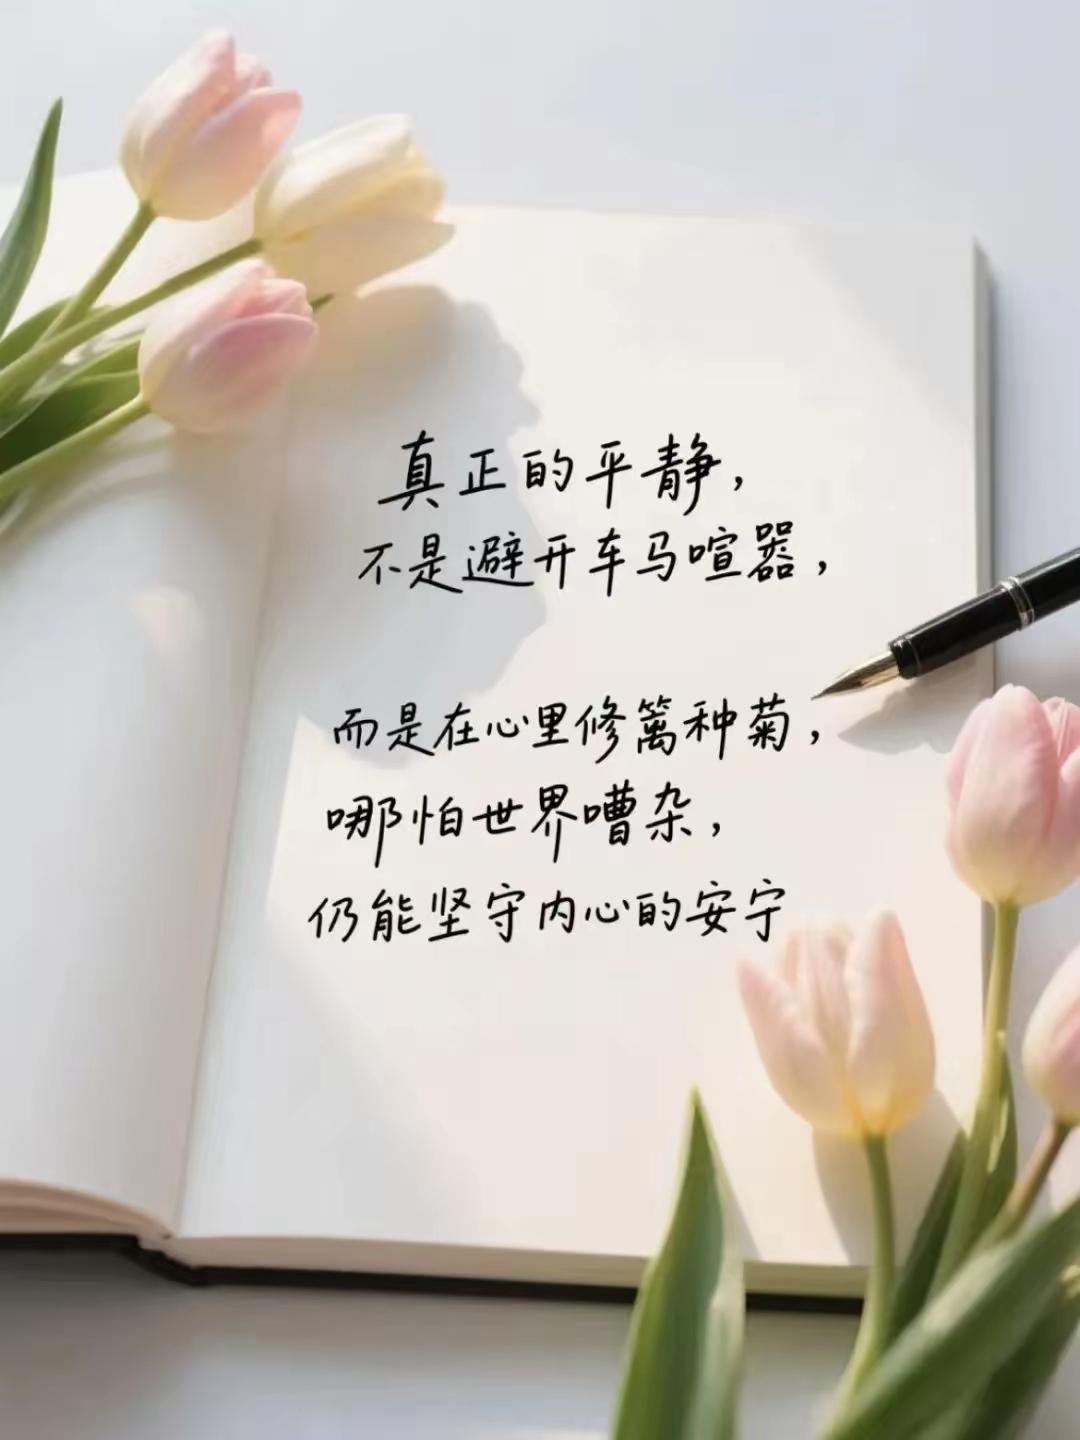 真正的平静，
不是避开车马喧嚣，
而是在心里修篱种菊，
哪怕世界嘈杂，
仍能坚守内心的安宁